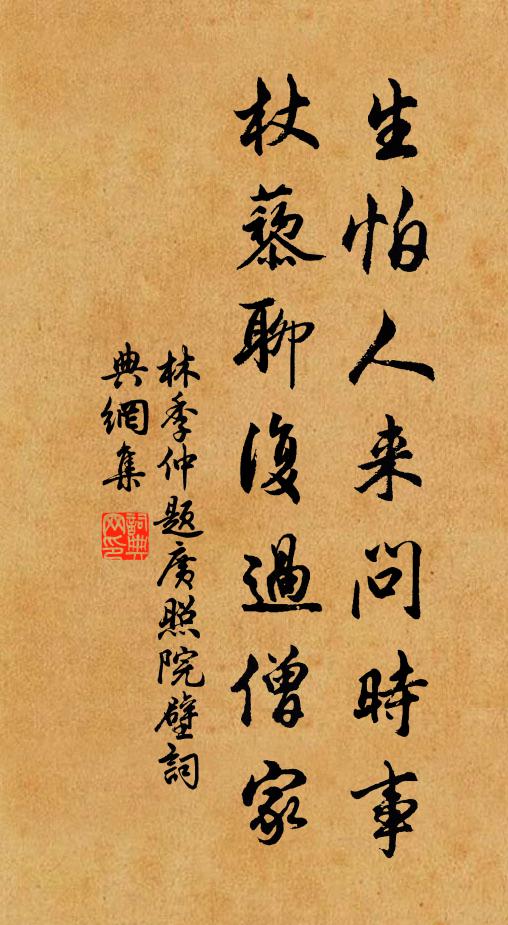 生怕人来問時事
杖藜聊復過僧家
林季仲题廣照院壁詞
典網集
詞典网印